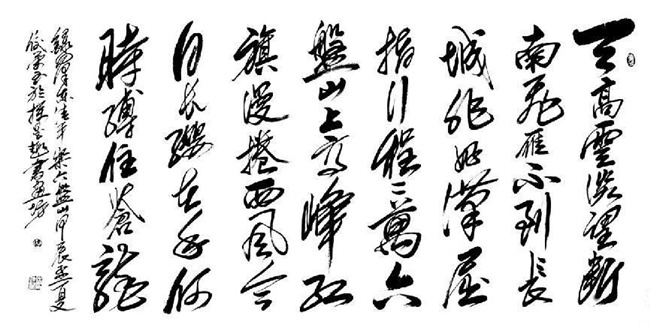 天高雲淡望斷
南飛雁不到長
城非好漢屈
指行程二萬六
盤山上高峰紅
旗漫捲西風今
日長纓在手何
時縛住蒼龍
澤東 樂六盤山甲辰孟夏
書畫坊